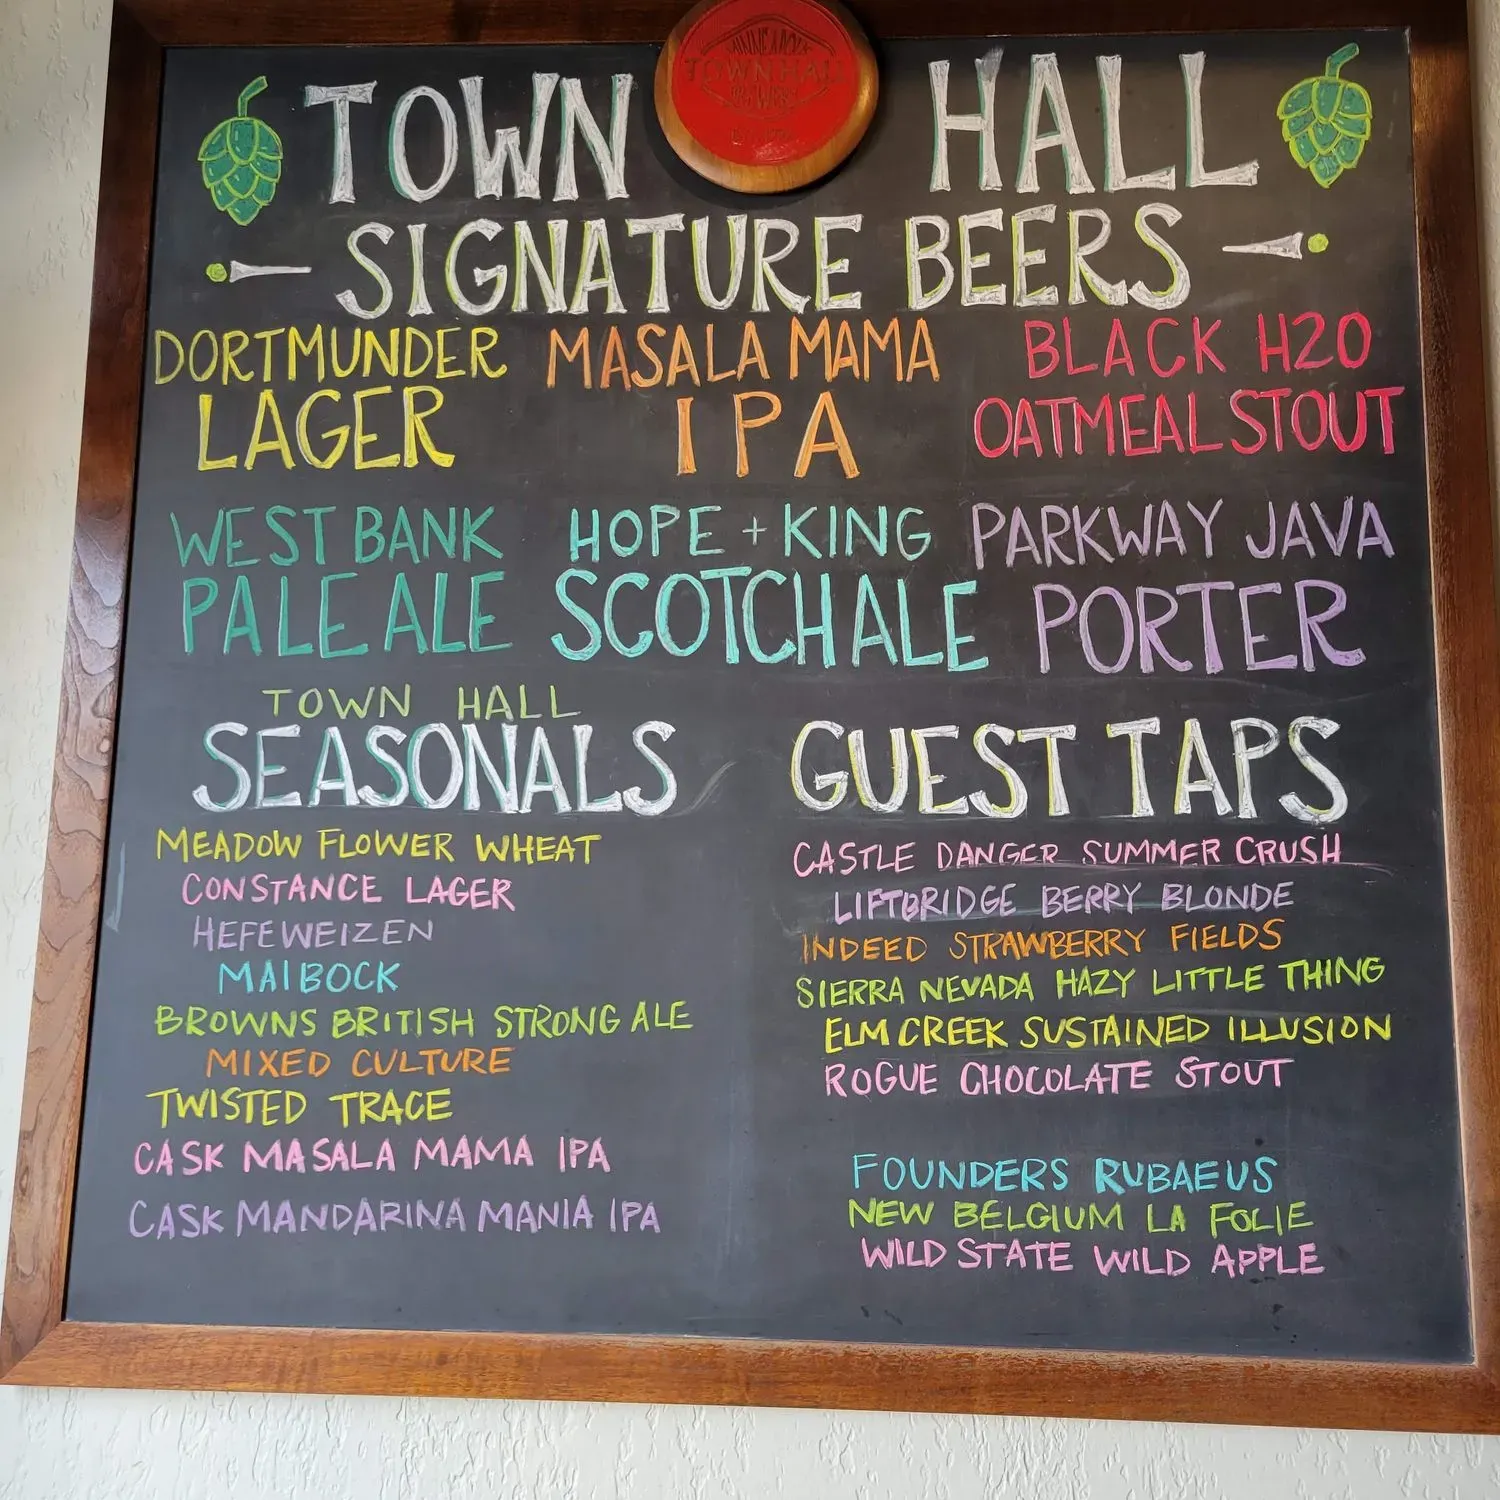 MINNEAPOLIS
TOWN HALL
BREWERY
TOWN HALL
SIGNATURE BEERS
DORTMUNDER
LAGER
MASALA MAMA
IPA
BLACK H2O
OATMEAL STOUT
WEST BANK
PALE ALE
HOPE + KING
SCOTCH ALE
PARKWAY JAVA
PORTER
TOWN HALL
SEASONALS
MEADOW FLOWER WHEAT
CONSTANCE LAGER
HEFEWEIZEN
MAIBOCK
BROWNS BRITISH STRONG ALE
MIXED CULTURE
TWISTED TRACE
CASK MASALA MAMA IPA
CASK MANDARINA MANIA IPA
GUEST TAPS
CASTLE DANGER SUMMER CRUSH
LIFTBRIDGE BERRY BLONDE
INDEED STRAWBERRY FIELDS
SIERRA NEVADA HAZY LITTLE THING
ELM CREEK SUSTAINED ILLUSION
ROGUE CHOCOLATE STOUT
FOUNDERS RUBAEUS
NEW BELGIUM LA FOLIE
WILD STATE WILD APPLE